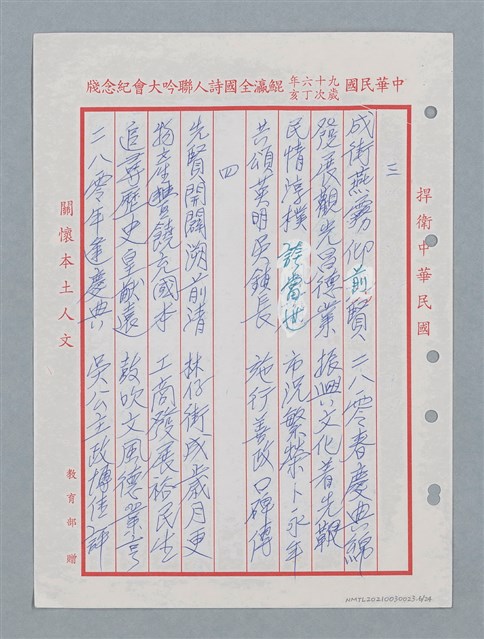 中華民國九十六年歲次丁亥鯤瀛全國詩人聯吟大會紀念牋
捍衛中華民國
三
成街燕霧仰前賢 二八零春慶典綿
發展觀光昌德業 振興文化著先鞭
民情淳樸誇當世 市況繁榮卜永年
共頌英明吳鎮長 施行善政口碑傳
四
先賢開闢溯前清 林仔街成歲月更
物產豐饒充國本 工商發展裕民生
追尋歷史皇猷遠 鼓吹文風德業亨
二八零年逢慶典 吳公主政博佳評
關懷本土人文
教育部贈
NMTL20210030023-6/24